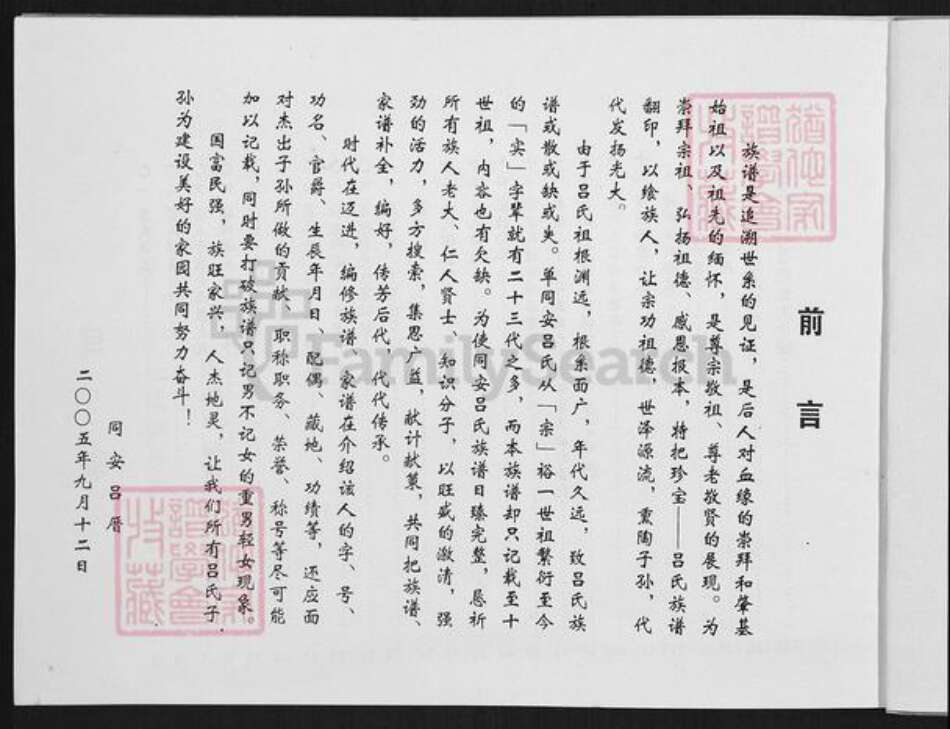 前言
族谱是追溯世系的见证，是后人对血缘的崇拜和肇基
始祖以及祖先的缅怀，是尊宗敬祖、尊老敬贤的展现。为
崇拜宗祖、弘扬祖德、感恩报本，特把珍宝——吕氏族谱
翻印，以绘族人，让宗功祖德，世泽源流，熏陶子孙，代
代发扬光大。
由于吕氏祖根渊远，根系面广，年代久远，致吕氏族
谱或散或缺或失。单同安吕氏从「宗」裕一世祖繁衍至今
的「实」字辈就有二十三代之多，而本族谱却只记载至十
世祖，内容也有欠缺。为使同安吕氏族谱日臻完整，恳祈
所有族人老大、仁人贤士、知识分子，以旺盛的激清，强
劲的活力，多方搜索，集思广益，献计献策，共同把族谱、
家谱补全，编好，传芳后代，代代传承。
时代在迈进，编修族谱、家谱在介绍该人的字、号、
功名、官爵、生辰年月日、配偶、藏地、功绩等，还应面
对杰出子孙所做的贡献、职称职务、荣誉、称号等尽可能
加以记载，同时要打破族谱吕记男不记女的重男轻女现象。
国富民强，族旺家兴，人杰地灵，让我们所有吕氏子
孙为建设美好的家园共同努力奋斗！
同安吕厝
二〇〇五年九月十二日
FamilySearch